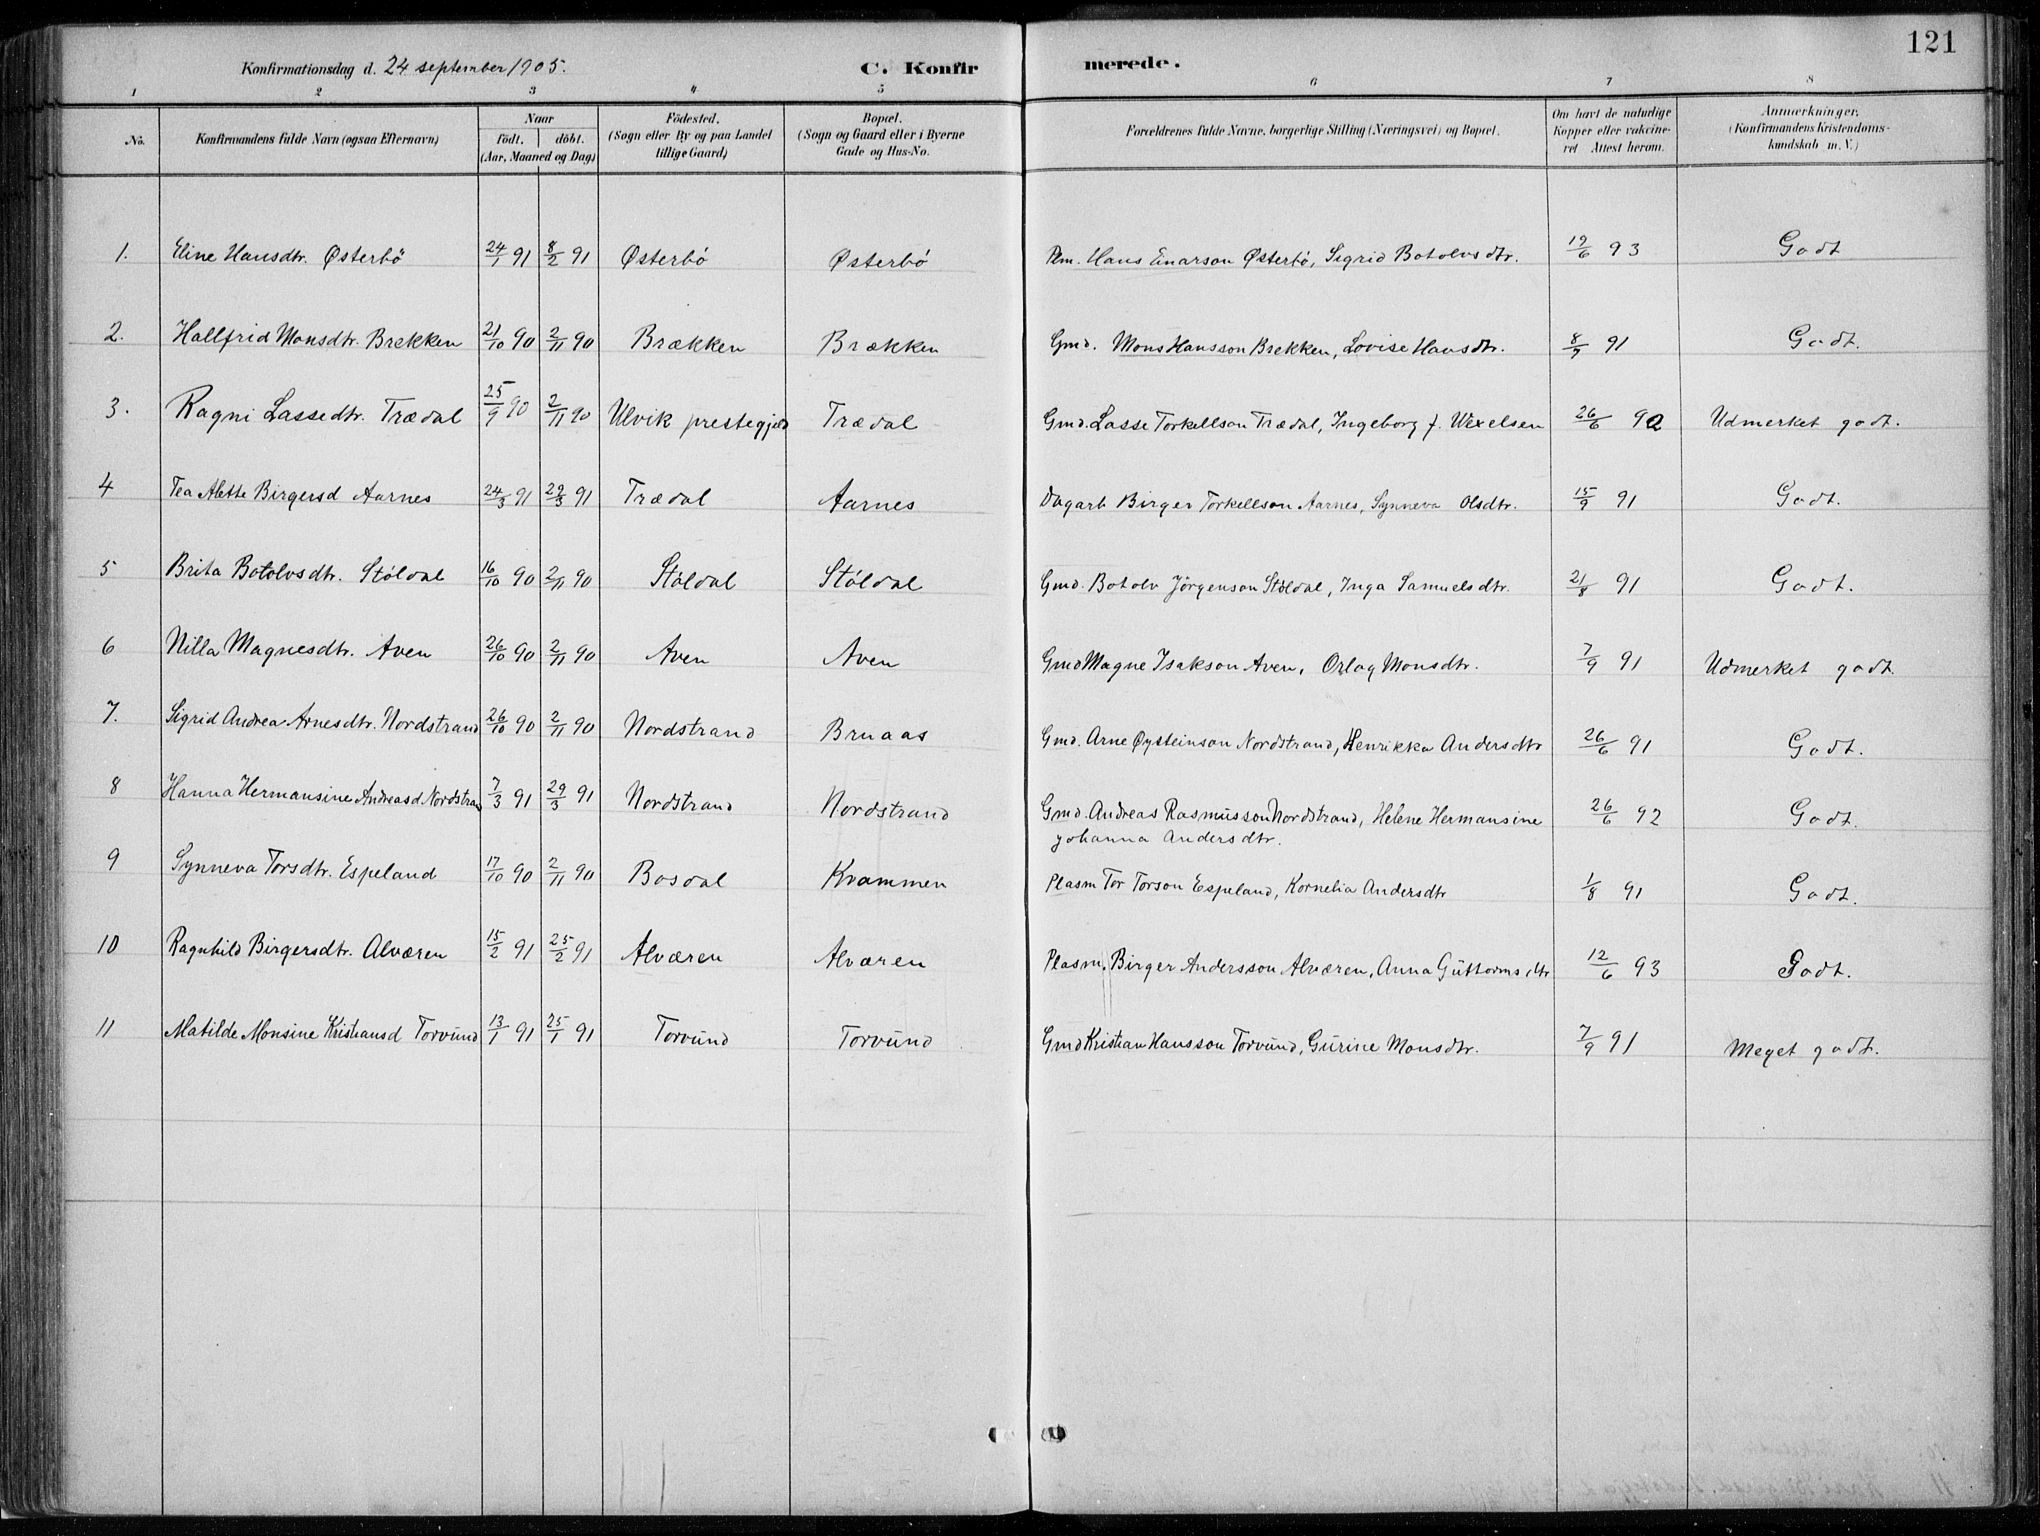 121
Konfirmationsdag d. 24 september 1905.
C. Konfirmerede.
1 2 3 4 5 6 7 8
No. | Konfirmandens fulde Navn (ogsaa Efternavn) | Naar födt, döbt. (Aar, Maaned og Dag) | Födested. (Sogn eller By og paa Landet tillige Gaard) | Bopæl. (Sogn og Gaard eller i Byerne Gade og Hus-No. | Forældrenes fulde Navne, borgerlige Stilling (Næringsvei) og Bopæl. | Om havt de naturlige Kopper eller vakcineret Attest herom. | Anmærkninger. (Konfirmandens Kristendomskundskab m. V.)
1. Eline Hansdtr. Østerbö 24/1 91 8/2 91 Østerbö Østerbö Plm. Hans Enarson Østerbö, Sigrid Botolvsdtr. 19/6 93 Godt
2. Hallfrid Monsdtr. Brekken 21/10 90 2/11 90 Brækken Brækken Gmd. Mons Hansson Brekken, Lovise Hansdtr. 8/7 91 Godt.
3. Ragni Lassedtr. Trædal 25/9 90 2/11 90 Ulvik prestegjeld Trædal Gmd. Lasse Torkellson Trædal, Ingeborg f. Wexelsen 26/6 92 Udmerket godt.
4 Tea Alette Birgersd Aarnes 24/3 91 29/3 91 Trædal Aarnes Dagarb Birger Torkellson Aarnes, Synneva Olsdtr. 15/9 91 Godt.
5 Brita Botolvsdtr. Stöldal 16/10 90 2/11 90 Stöldal Stöldal Gmd. Botolv Jörgenson Stöldal, Inga Samuelsdtr. 21/8 91 Godt.
6 Nilla Magnesdtr. Aven 26/10 90 2/11 90 Aven Aven Gmd Magne Isakson Aven, Orlog Monsdtr. 7/9 91 Udmerket godt.
7. Sigrid Andrea Arnesdtr. Nordstrand 26/10 90 2/11 90 Nordstrand Bruaas Gmd. Arne Øysteinson Nordstrand, Henrikka Andersdtr 26/6 91 Godt.
8 Hanna Hermansine Andreasd. Nordstrand 7/3 91 29/3 91 Nordstrand Nordstrand Gmd. Andreas Rasmusson Nordstrand, Helene Hermansine
Johanna Andersdtr. 26/6 92 Godt.
9 Synneva Torsdtr. Espeland 17/10 90 2/11 90 Bosdal Kvammen Plasm Tor Torson Espeland, Kornelia Andersdtr 1/8 91 Godt.
10 Ragnhild Birgersdtr. Alværen 15/2 91 25/2 91 Alværen Alværen Plasm. Birger Andersson Alværen, Anna Guttormsdtr 12/6 93 Godt.
11 Matilde Monsine Kristiansd Torvund 13/1 91 25/1 91 Torvund Torvund Gmd Kristian Hansson Torvund, Gurine Monsdtr. 7/9 91 Meget godt.